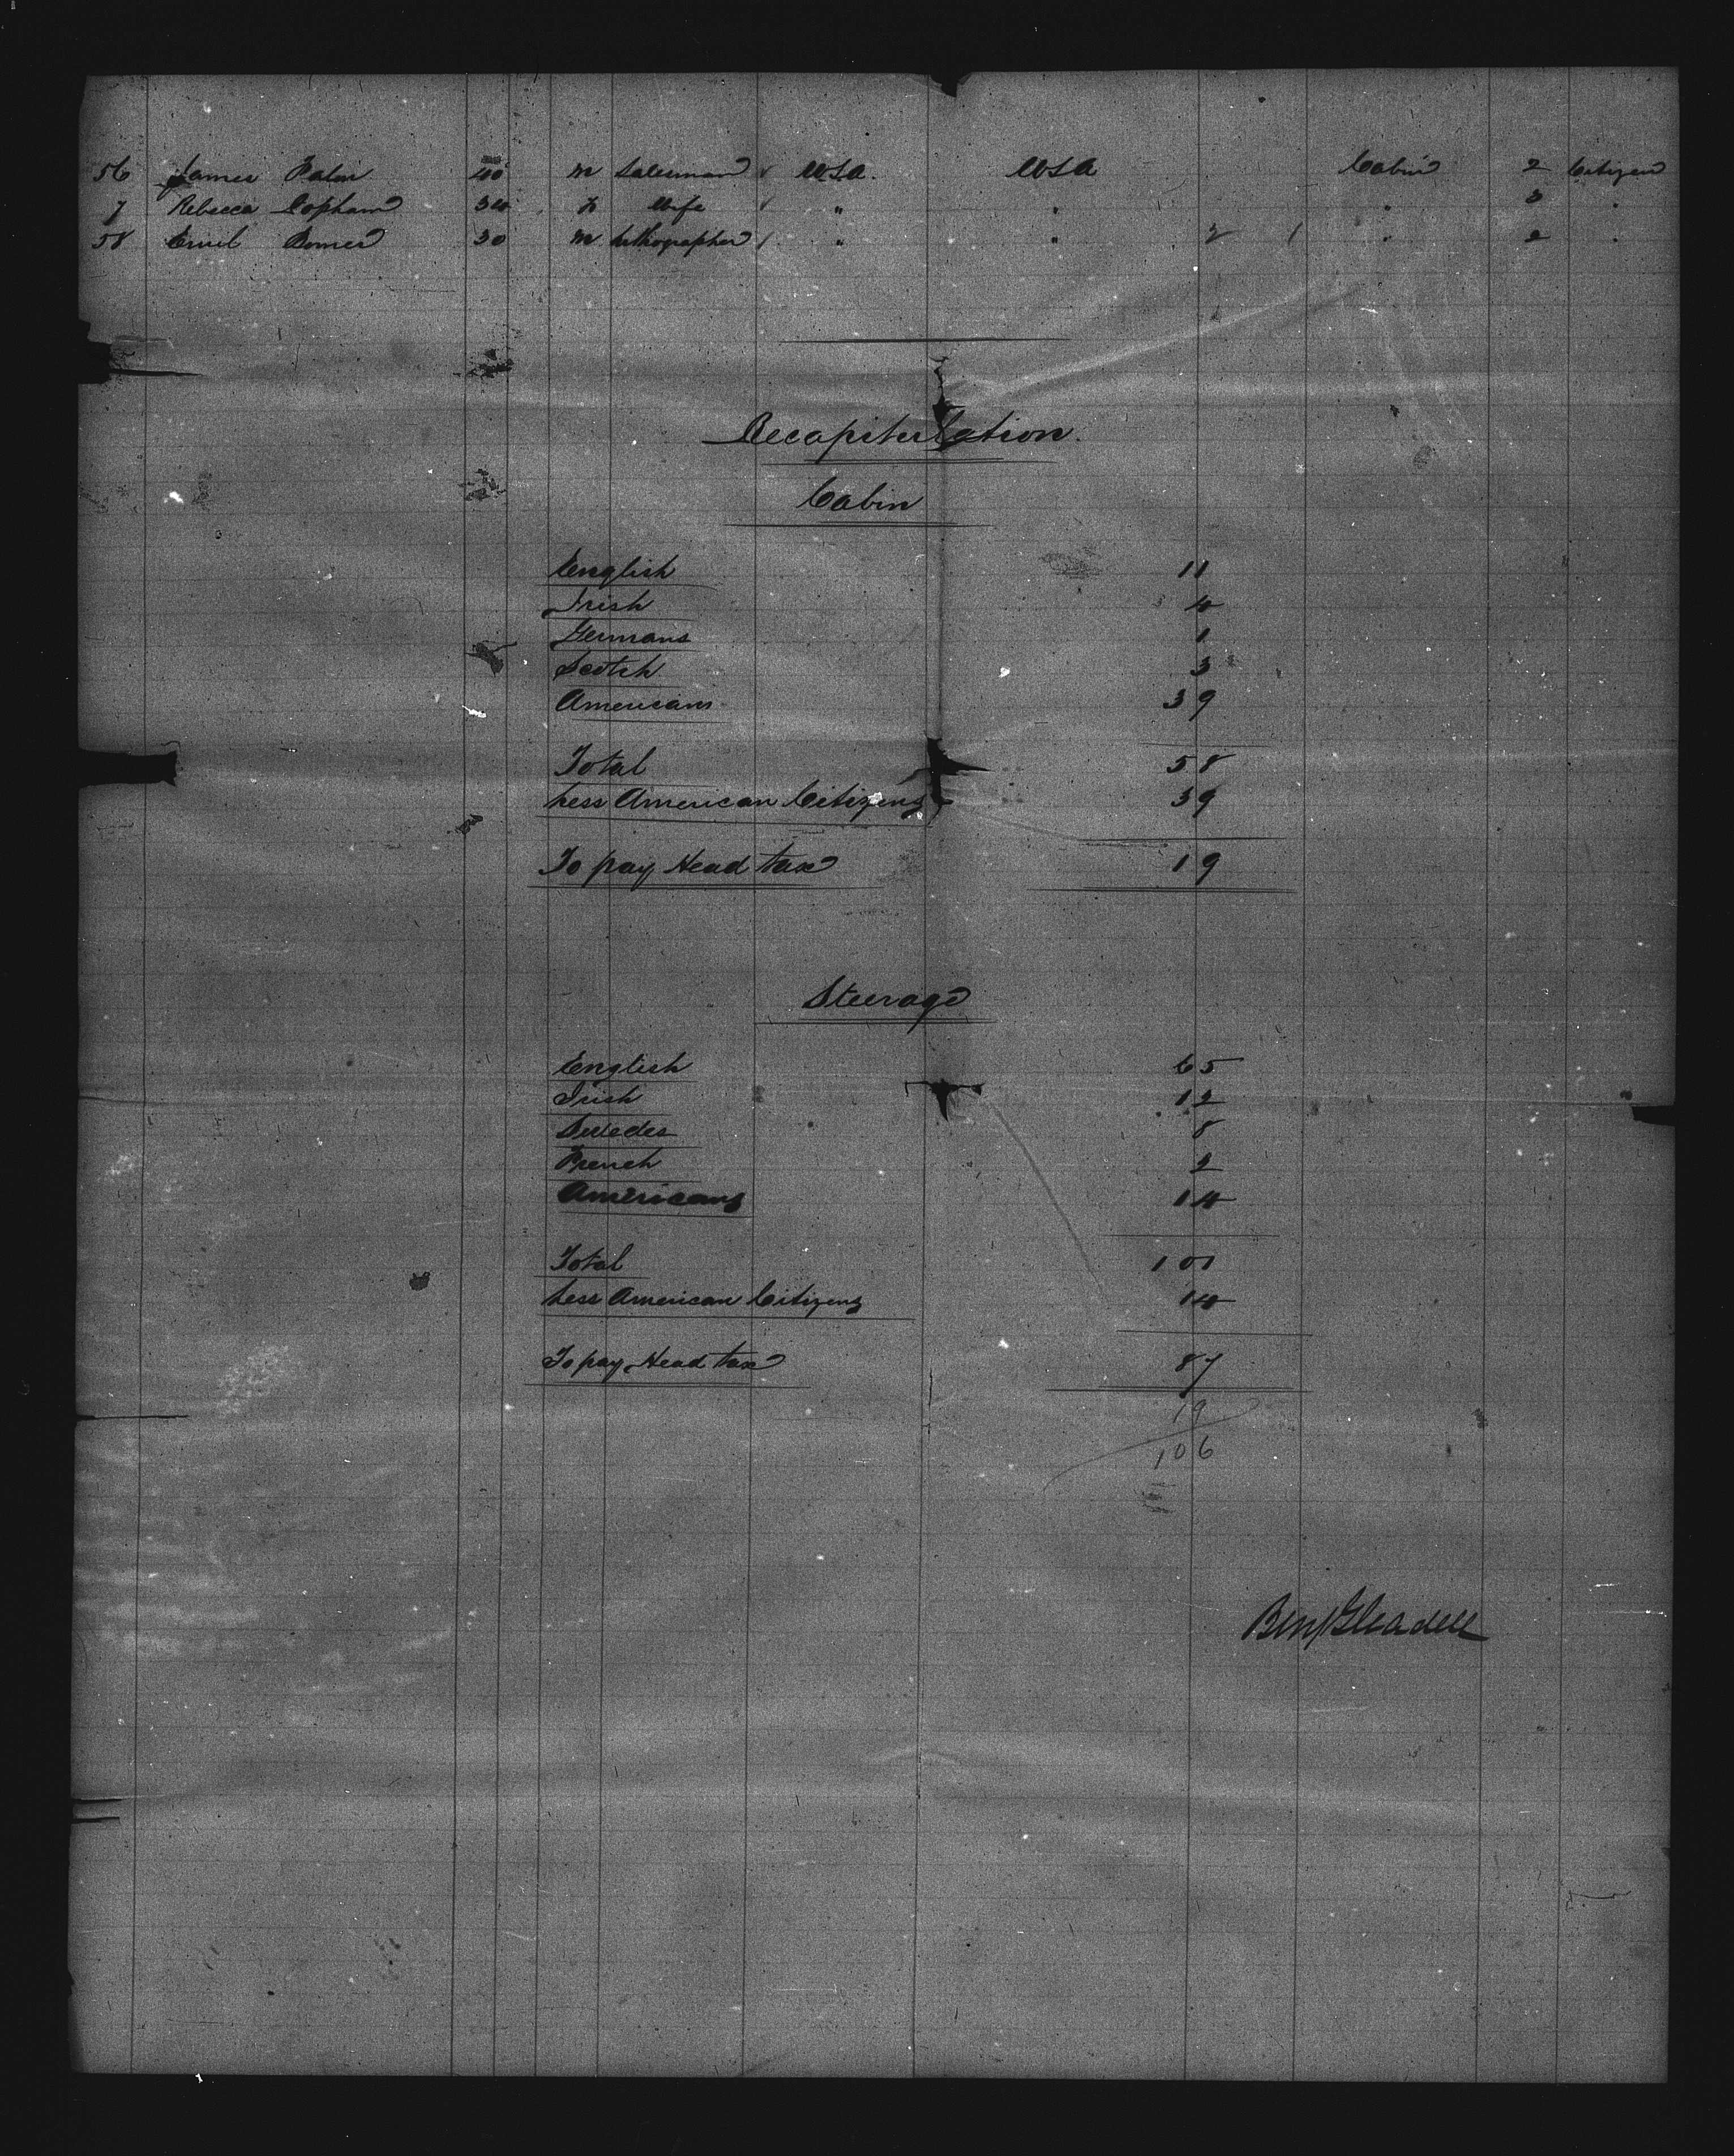 56 James 40 m Salesman U.S.A. U.S.A Cabin 2 Citizen
7 Rebecca Copham 34 f Wife " " " 3 "
58 Emil Bomer 30 m Lithographer " " 2 1 " 2 "
Recapitulation.
Cabin
English 11
Irish 4
Germans 1
Scotch 3
Americans 39
Total 58
Less American Citizens 39
To pay Head tax 19
Steerage
English 65
Irish 12
Swedes 8
French 2
Americans 14
Total 101
Less American Citizens 14
To pay Head tax 87
19
106
Benj Gleadell